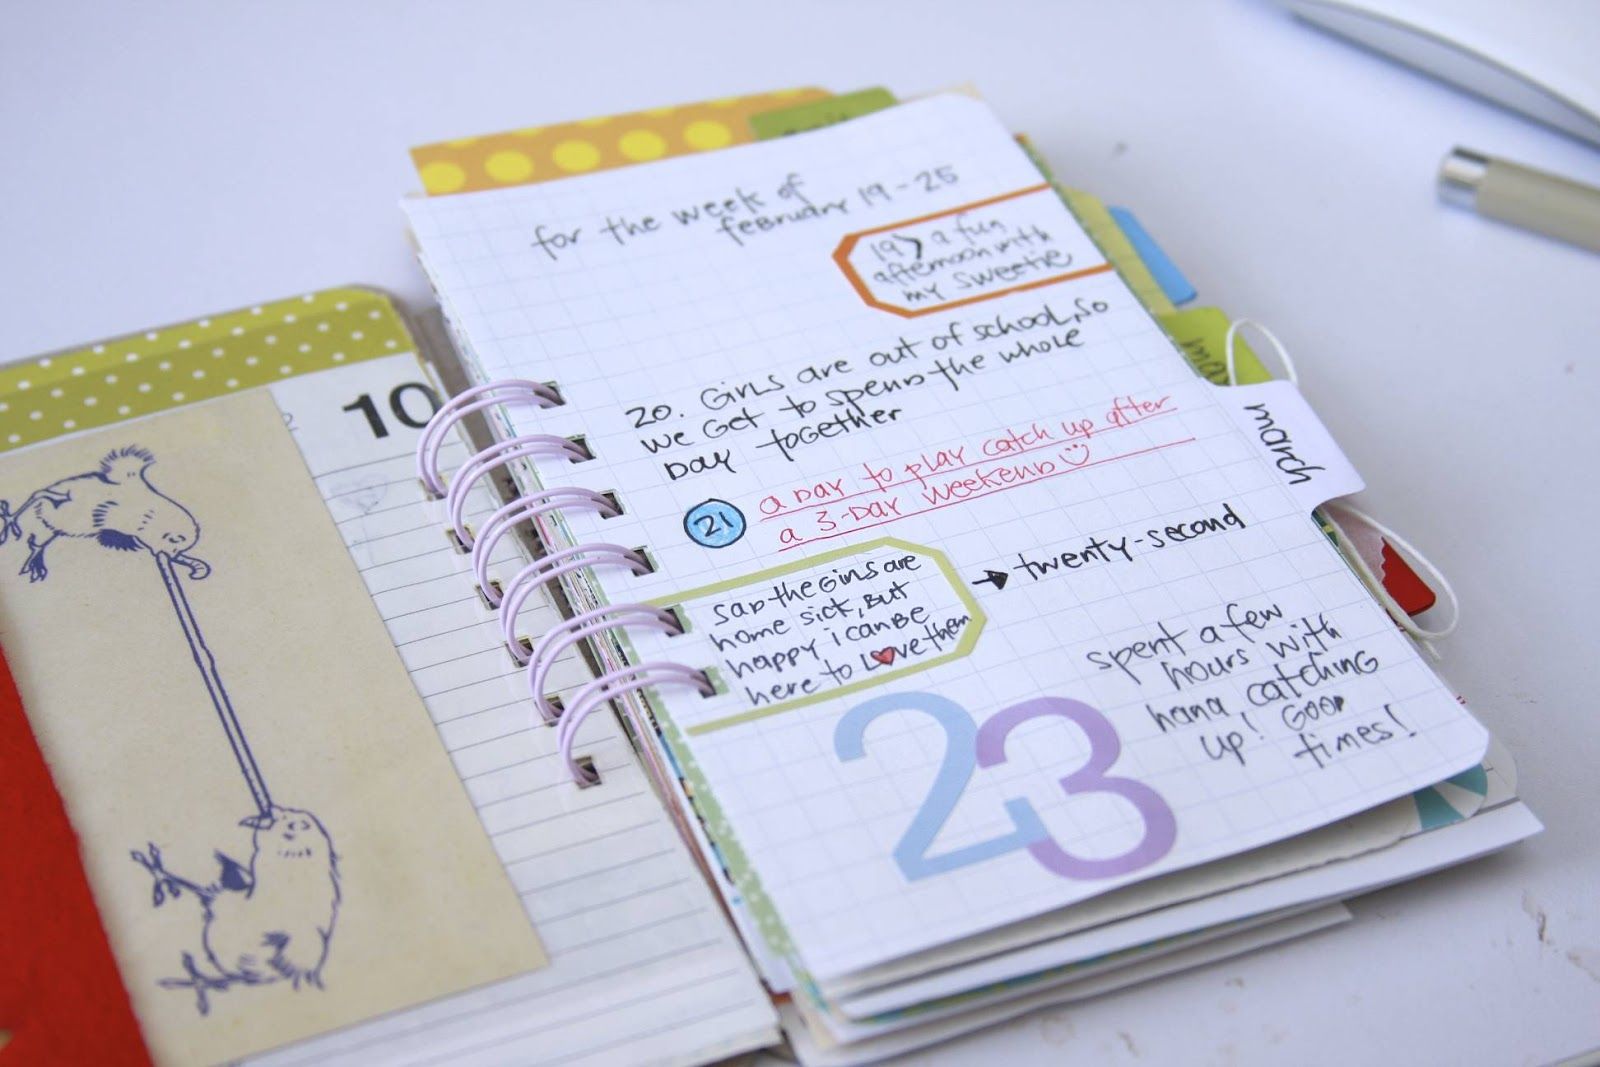 10
for the week of
february 19-25
19> a fun
afternoon with
my sweetie
20. Girls are out of school, so
we get to spend the whole
day together
21 a day to play catch up after
a 3-day weekend
sad the girls are
home sick, but
happy i can be
here to love them
→ twenty-second
23
spent a few
hours with
hana catching
up! Good
times!
march